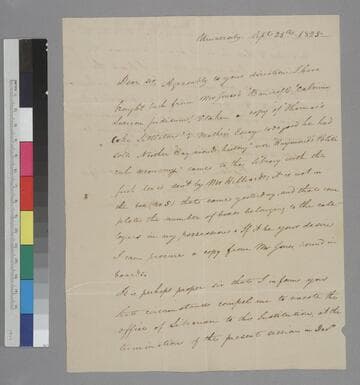 University Sept 28th 1825
Dear Sir, Agreeably to your direction I have
bought back from Mr Jones' Bancroft's
& taken a copy of Thomas's
Coke he had
sold. Neither Raymond's history nor Raymond's
came to the library with the
first box sent by Mr Hilliard; it is not in
the box (no 5) that came yesterday, and that completes
the number of boxes belonging to the cata-
logues in my possession. If it be your desire
I can procure a copy from Mr Jones bound in
boards.
It is perhaps proper sir that I inform you
that circumstances compel me to vacate the
office of Librarian to this Institution, at the
termination of the present session in Decr